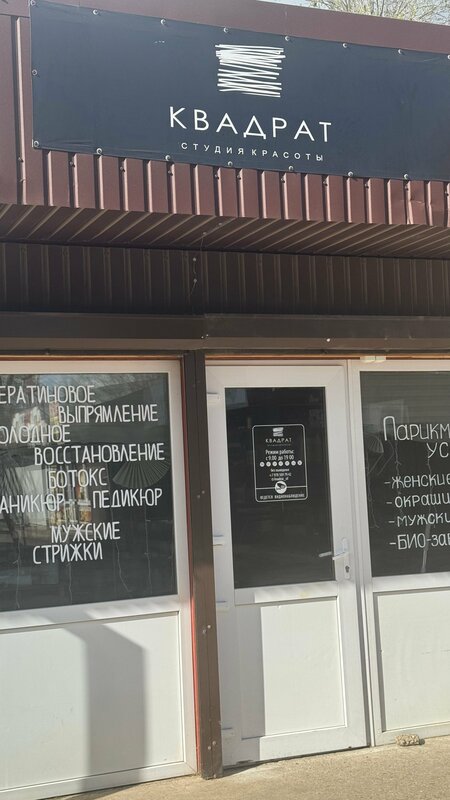 КВАДРАТ
СТУДИЯ КРАСОТЫ
ЕРАТИНОВОЕ
ВЫПРЯМЛЕНИЕ
ОЛОДНОЕ
ВОССТАНОВЛЕНИЕ
БОТОКС
АНИКЮР ПЕДИКЮР
МУЖСКИЕ
СТРИЖКИ
КВАДРАТ
Режим работы:
с 9.00 до 19.00
без выходных
ВЕДЕТСЯ ВИДЕОНАБЛЮДЕНИЕ
Парикм
УС
-женские
-окраши
-мужски
-БИО-за